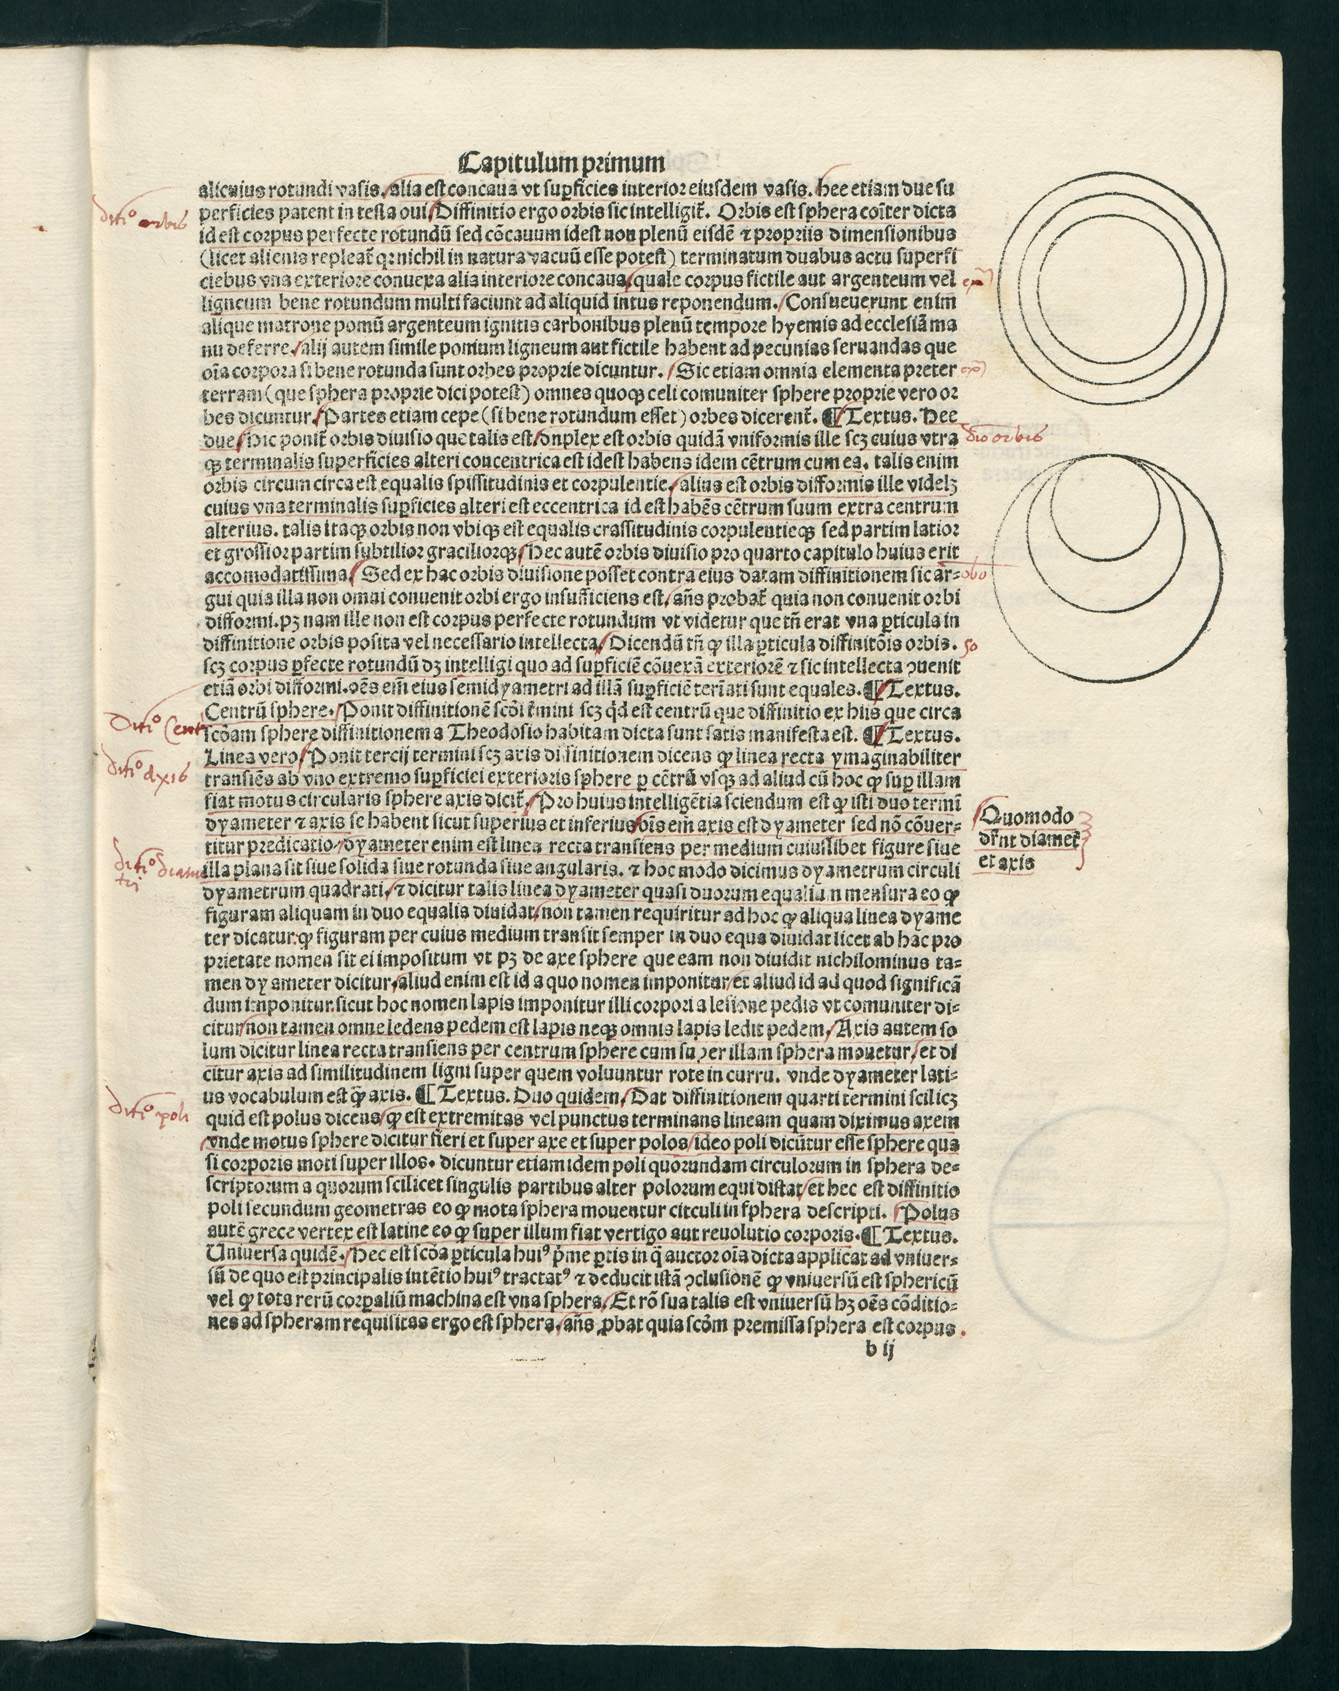 Capitulum primum
alicuius rotundi vasis. alia est concaua vt suꝑficies interior eiusdem vasis. Hee etiam due su
perficies patent in testa oui Diffinitio ergo orbis sic intelligit̃. Orbis est sphera cõiter dicta
id est corpus perfecte rotundũ sed cõcauum idest non plenũ eisdẽ ⁊ propriis dimensionibus
(licet alienis repleat̃ qr nichil in natura vacuũ esse potest) terminatum duabus actu superfi
ciebus vna exteriore conuexa alia interiore concaua quale corpus fictile aut argenteum vel
ligneum bene rotundum multi faciunt ad aliquid intus reponendum. Consueuerunt enim
alique matrone pomũ argenteum ignitis carbonibus plenũ tempore hyemis ad ecclesiã ma
nu deferre. alij autem simile pomum ligneum aut fictile habent ad pecunias seruandas que
oĩa corpora si bene rotunda sunt orbes proprie dicuntur. Sic etiam omnia elementa preter
terram (que sphera proprie dici potest) omnes quoqꝫ celi comuniter sphere proprie vero or
bes dicuntur. Partes etiam cepe (si bene rotundum esset) orbes dicerent̃. ¶ Textus. Hee
due Hic ponit̃ orbis diuisio que talis est simplex est orbis quidã vniformis ille scꝫ cuius vtra
qꝫ terminalis superficies alteri concentrica est idest habens idem cẽtrum cum ea. talis enim
orbis circum circa est equalis spissitudinis et corpulentie. alius est orbis difformis ille videlꝫ
cuius vna terminalis suꝑficies alteri est eccentrica id est habẽs cẽtrum suum extra centrum
alterius. talis itaqꝫ orbis non vbiqꝫ est equalis crassitudinis corpulentieqꝫ sed partim latior
et grossior partim subtilior graciliorqꝫ Hec autẽ orbis diuisio pro quarto capitulo huius erit
accomodatissima Sed ex hac orbis diuisione posset contra eius datam diffinitionem sic ar-
gui quia illa non omni conuenit orbi ergo insufficiens est. añs probat̃ quia non conuenit orbi
difformi. pꝫ nam ille non est corpus perfecte rotundum vt videtur que tñ erat vna ꝑticula in
diffinitione orbis posita vel necessario intellecta Dicendũ tñ ꝙ illa ꝑticula diffinitõis orbis.
scꝫ corpus ꝑfecte rotundũ dꝫ intelligi quo ad suꝑficiẽ cõuexã exteriorẽ ⁊ sic intellecta ꝯuenit
etiã orbi difformi. oẽs em̃ eius semidyametri ad illã suꝑficiẽ termĩati sunt equales. ¶ Textus.
Centrũ sphere. Ponit diffinitionẽ scõi t̃mini scꝫ qd est centrũ que diffinitio ex hiis que circa
scõam sphere diffinitionem a Theodosio habitam dicta sunt satis manifesta est. ¶ Textus.
Linea vero Ponit tercij termini scꝫ axis diffinitionem dicens ꝙ linea recta ymaginabiliter
transiẽs ab vno extremo suꝑficiei exterioris sphere ꝑ cẽtrũ vsqꝫ ad aliud cũ hoc ꝙ suꝑ illam
fiat motus circularis sphere axis dicit̃. Pro huius intelligẽtia sciendum est ꝙ isti duo termĩ
dyameter ⁊ axis se habent sicut superius et inferius oĩs em̃ axis est dyameter sed nõ cõuer-
titur predicatio. dyameter enim est linea recta transiens per medium cuiuslibet figure siue
illa plana sit siue solida siue rotunda siue angularis. ⁊ hoc modo dicimus dyametrum circuli
dyametrum quadrati. ⁊ dicitur talis linea dyameter quasi duorum equalium mensura eo ꝙ
figuram aliquam in duo equalia diuidat non tamen requiritur ad hoc ꝙ aliqua linea dyame
ter dicatur ꝙ figuram per cuius medium transit semper in duo equa diuidat licet ab hac pro
prietate nomen sit ei impositum vt pꝫ de axe sphere que eam non diuidit nichilominus ta-
men dyameter dicitur. aliud enim est id a quo nomen imponitur et aliud id ad quod significã
dum imponitur. sicut hoc nomen lapis imponitur illi corpori a lesione pedis vt comuniter di-
citur non tamen omne ledens pedem est lapis neqꝫ omnis lapis ledit pedem. Axis autem so
lum dicitur linea recta transiens per centrum sphere cum super illam sphera mouetur. et di
citur axis ad similitudinem ligni super quem voluuntur rote in curru. vnde dyameter lati-
us vocabulum est q̃ axis. ¶ Textus. Duo quidem Dat diffinitionem quarti termini scilicꝫ
quid est polus dicens ꝙ est extremitas vel punctus terminans lineam quam diximus axem
vnde motus sphere dicitur fieri et super axe et super polos ideo poli dicũtur esse sphere qua
si corporis moti super illos. dicuntur etiam idem poli quorundam circulorum in sphera de-
scriptorum a quorum scilicet singulis partibus alter polorum equidistat et hec est diffinitio
poli secundum geometras eo ꝙ mota sphera mouentur circuli in sphera descripti. Polus
autẽ grece vertex est latine eo ꝙ super illum fiat vertigo aut reuolutio corporis. ¶ Textus.
Uniuersa quidẽ. Hec est scõa ꝑticula huiꝰ p̃me ꝑtis in q̃ auctor oĩa dicta applicat ad vniuer-
sũ de quo est principalis intẽtio huiꝰ tractatꝰ ⁊ deducit istã ꝯclusionẽ ꝙ vniuersũ est sphericũ
vel ꝙ tota rerũ corꝑaliũ machina est vna sphera. Et rõ sua talis est vniuersũ hꝫ oẽs cõditio-
nes ad spheram requisitas ergo est sphera. añs ꝓbat quia scõm premissa sphera est corpus.
b ij
Quomodo
dr̃nt diamet̃
et axis
diffiᵒ orbis
exᵐ
exᵐ
diuᵒ orbis
obᵒ
so
Diffiᵒ Cent
diffiᵒ axis
diffiᵒ diame
tri
diffiᵒ poli